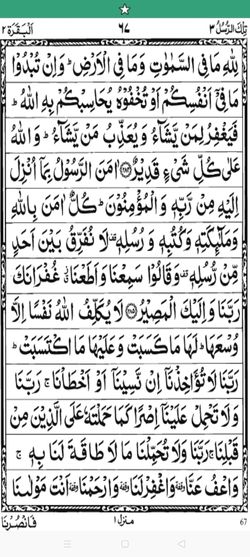 تِلْكَ الرُّسُلُ ٣ ٦٧ اَلْبَقَرَة ٢
لِلّٰهِ مَا فِى السَّمٰوٰتِ وَمَا فِى الْاَرْضِ ؕ وَاِنْ تُبْدُوْا
مَا فِىْۤ اَنْفُسِكُمْ اَوْ تُخْفُوْهُ يُحَاسِبْكُمْ بِهِ اللّٰهُ ؕ
فَيَغْفِرُ لِمَنْ يَّشَآءُ وَ يُعَذِّبُ مَنْ يَّشَآءُ ؕ وَ اللّٰهُ
عَلٰى كُلِّ شَىْءٍ قَدِيْرٌ ﴿۲۸۴﴾ اٰمَنَ الرَّسُوْلُ بِمَاۤ اُنْزِلَ
اِلَيْهِ مِنْ رَّبِّهٖ وَ الْمُؤْمِنُوْنَ ؕ كُلٌّ اٰمَنَ بِاللّٰهِ
وَمَلٰٓئِكَتِهٖ وَكُتُبِهٖ وَ رُسُلِهٖ لَا نُفَرِّقُ بَيْنَ اَحَدٍ
مِّنْ رُّسُلِهٖ وَقَالُوْا سَمِعْنَا وَ اَطَعْنَا غُفْرَانَكَ
رَبَّنَا وَ اِلَيْكَ الْمَصِيْرُ ﴿۲۸۵﴾ لَا يُكَلِّفُ اللّٰهُ نَفْسًا اِلَّا
وُسْعَهَا ؕ لَهَا مَا كَسَبَتْ وَ عَلَيْهَا مَا اكْتَسَبَتْ ؕ
رَبَّنَا لَا تُؤَاخِذْنَاۤ اِنْ نَّسِيْنَاۤ اَوْ اَخْطَاْنَا ۚ رَبَّنَا
وَلَا تَحْمِلْ عَلَيْنَاۤ اِصْرًا كَمَا حَمَلْتَهٗ عَلَى الَّذِيْنَ مِنْ
قَبْلِنَا ۚ رَبَّنَا وَلَا تُحَمِّلْنَا مَا لَا طَاقَةَ لَنَا بِهٖ ۚ
وَاعْفُ عَنَّا وَاغْفِرْ لَنَا وَارْحَمْنَا اَنْتَ مَوْلٰىنَا
فَانْصُرْنَا منزل ١ 67